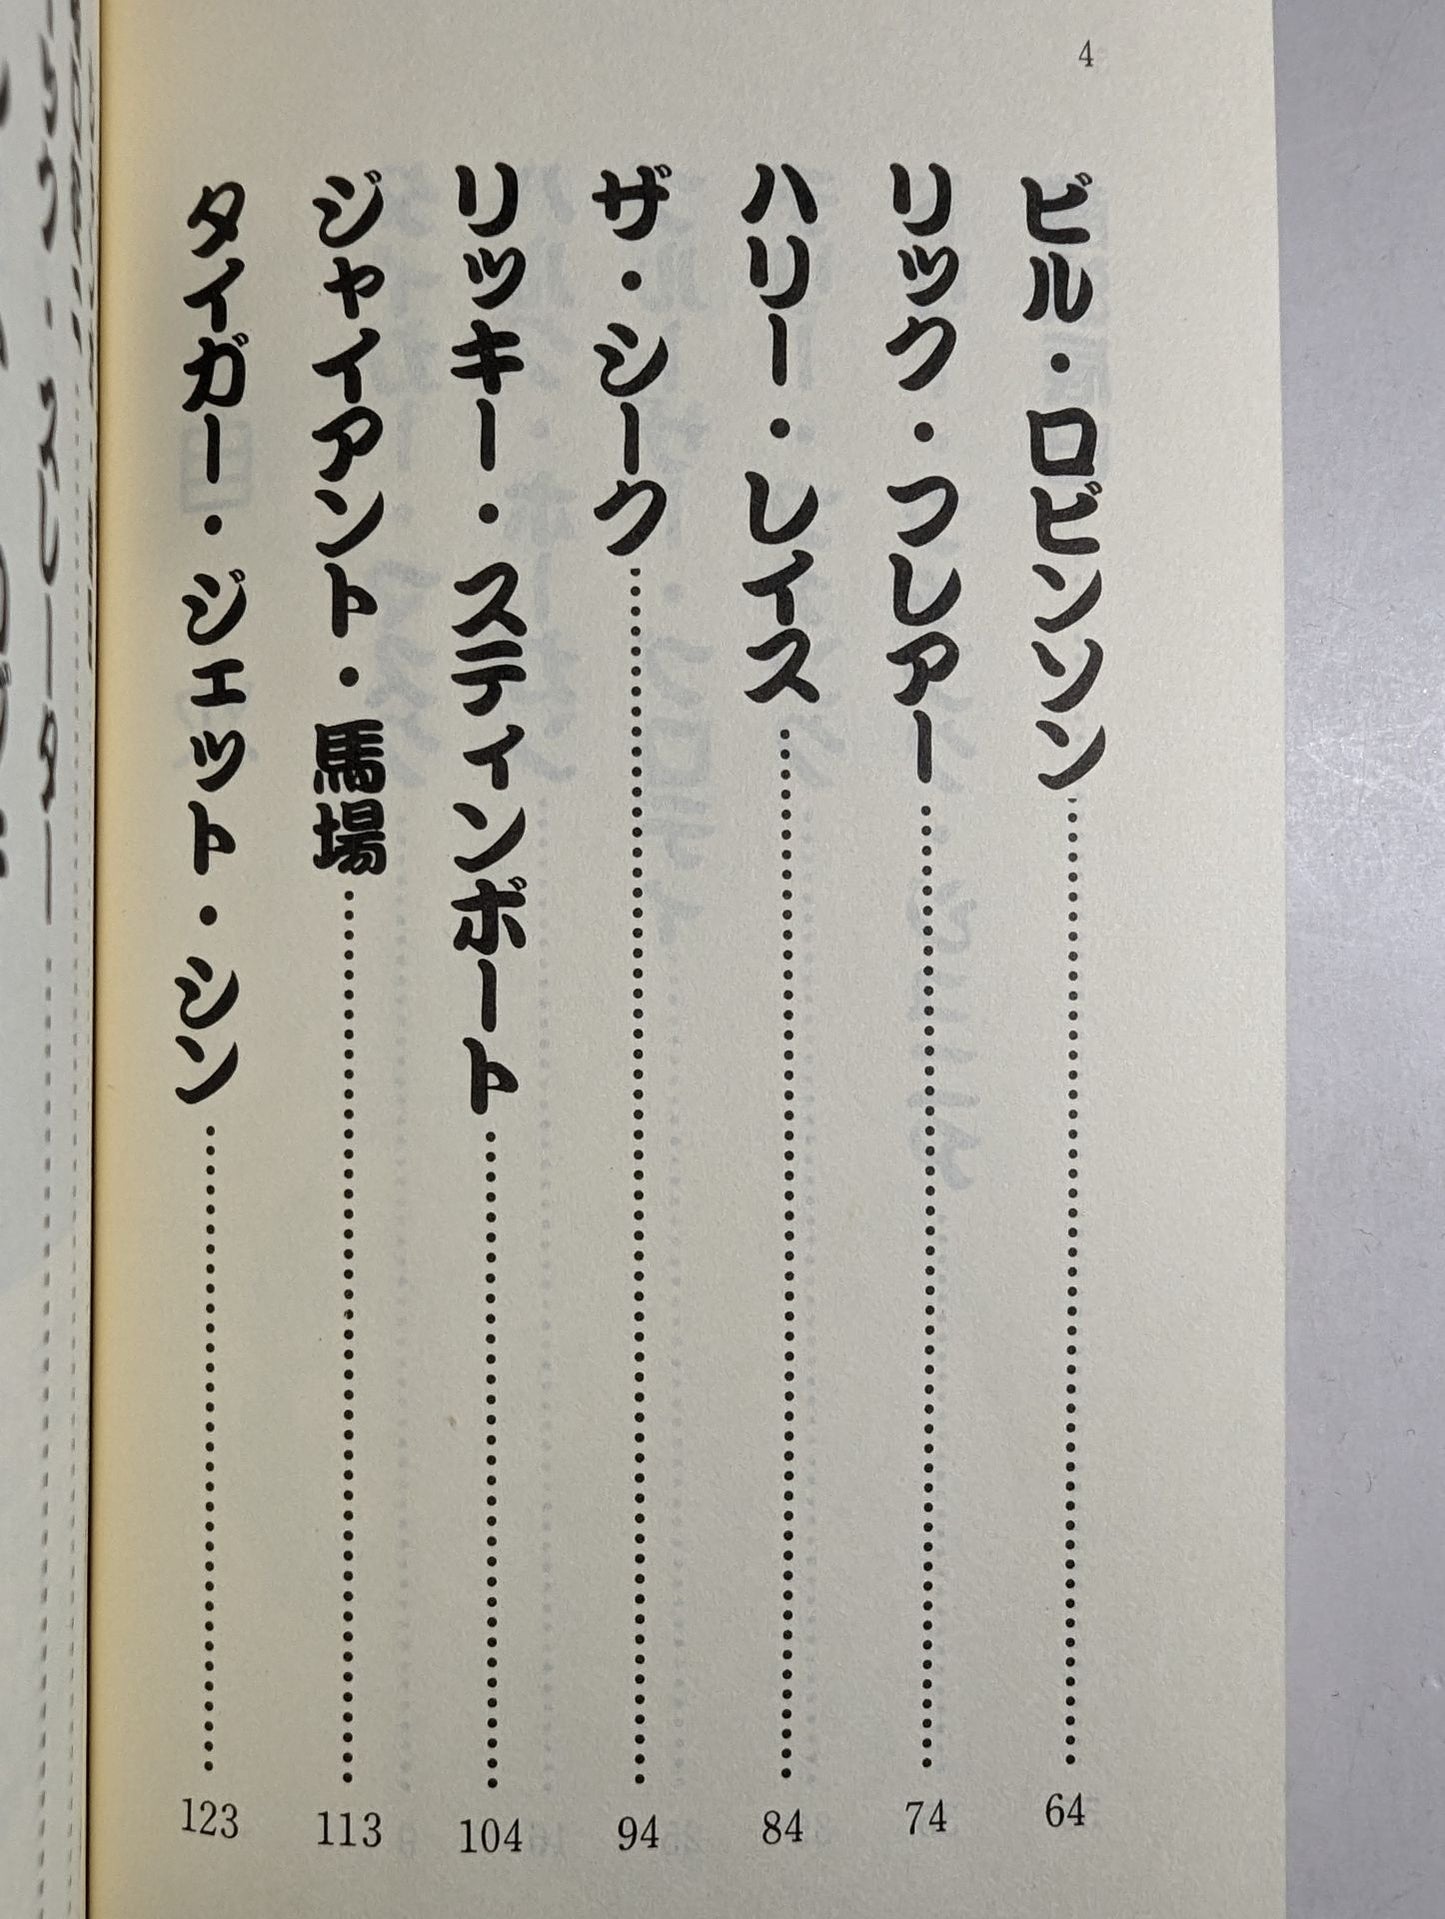 4
ビル・ロビンソン……64
リック・フレアー……74
ハリー・レイス……84
ザ・シーク……94
リッキー・スティンボート……104
ジャイアント・馬場……113
タイガー・ジェット・シン……123